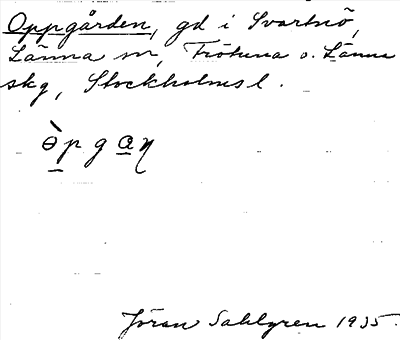 Oppgården, gd i Svartnö,
Länna sn, Frötuna o. Länna
skg, Stockholms l.
ə̀p g a̲ɳ
Jöran Sahlgren 1935.